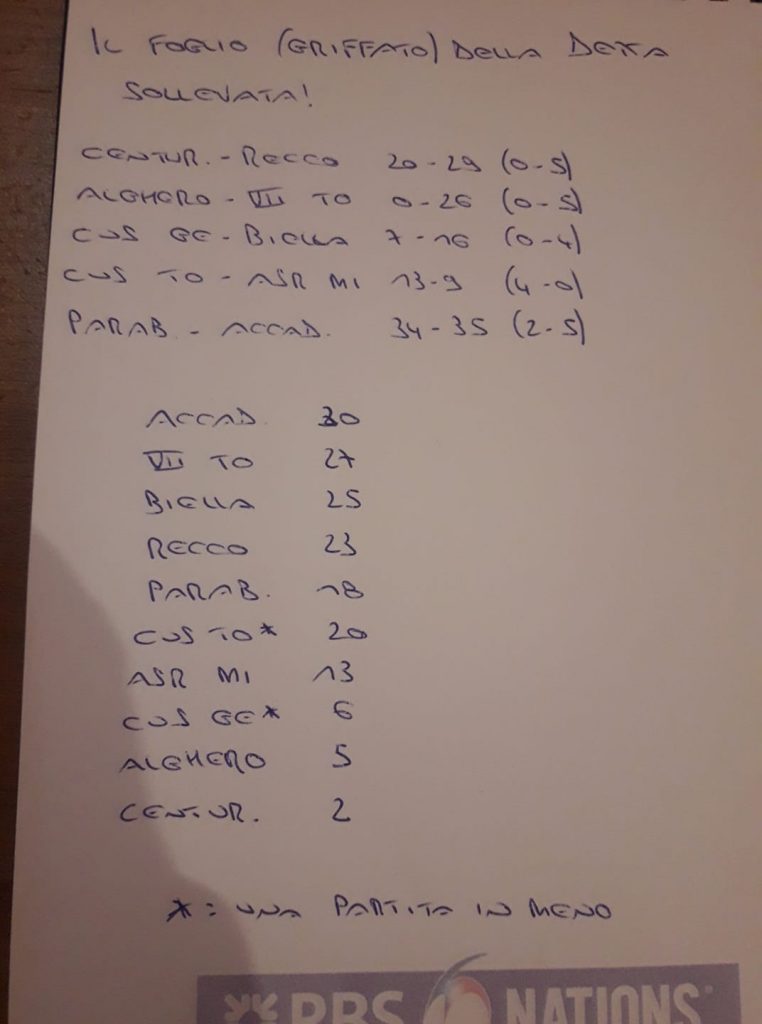 IL FOGLIO (GRIFFATO) DELLA DETTA
SOLLEVATA!
CENTUR. - RECCO 20-29 (0-5)
ALGHERO - VII TO 0-26 (0-5)
CUS GE - BIELLA 7-16 (0-4)
CUS TO - ASR MI 13-9 (4-0)
PARAB. - ACCAD. 34-35 (2-5)
ACCAD. 30
VII TO 27
BIELLA 25
RECCO 23
PARAB. 18
CUS TO* 20
ASR MI 13
CUS GE* 6
ALGHERO 5
CENTUR. 2
*: UNA PARTITA IN MENO
RBS 6 NATIONS